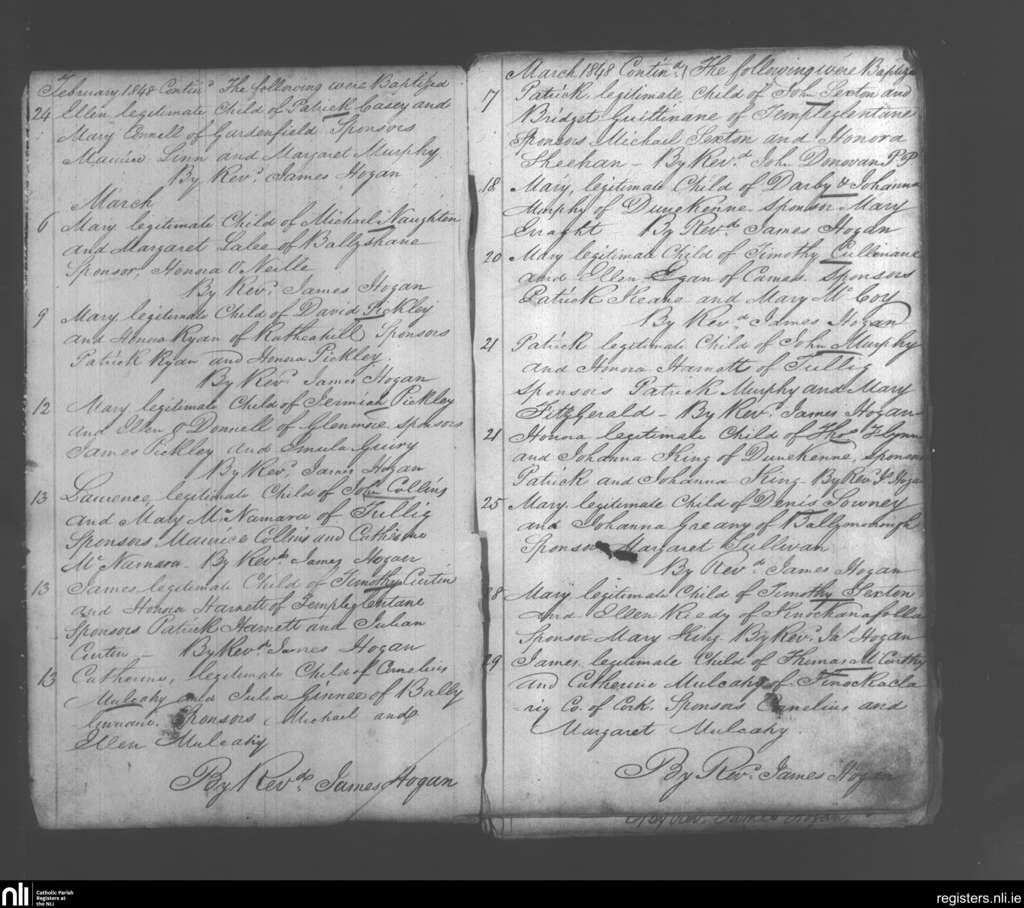 February 1848 Contin.d The following were Baptized
24 Ellen legitimate Child of Patrick Casey and
Mary Connell of Gardenfield Sponsors
Maurice Linn and Margaret Murphy
By Rev.d James Hogan
March
6 Mary legitimate Child of Michael Naughten
and Margaret Lalee of Ballyshane
Sponsor, Honora O'Neille
By Rev.d James Hogan
9 Mary legitimate Child of David Pickley
and Honora Ryan of Rathcahill Sponsors
Patrick Ryan and Honora Pickley.
By Rev.d James Hogan
12 Mary legitimate Child of Jermiah Pickley
and Ellen O Donnell of Glenmore Sponsors
James Pickley and
By Rev.d James Hogan
13 Laurence legitimate Child of John Collins
and Mary Mc Namara of Tullig
Sponsors Maurice Collins and Catherine
Mc Namara - By Rev.d James Hogan
13 James legitimate Child of Timothy Curtin
and Honora Harnett of Templeglentane
Sponsors Patrick Harnett and Julian
Curtin - By Rev.d James Hogan
13 Catherine, legitimate Child of Cornelius
Mulcahy and Julia Ginnee of Bally
Sponsors Michael and
Ellen Mulcahy
By Rev.d James Hogan
March 1848 Contin.d / The following were Baptize
17 Patrick legitimate Child of John Sexton and
Bridget Guiltinane of Templeglentane
Sponsors Michael Sexton and Honora
Sheehan - By Rev.d John Donovan P.P
18 Mary, legitimate Child of Darby & Johanna
Murphy of Dunekenne Sponsor Mary
By Rev.d James Hogan
20 Mary legitimate Child of Timothy Cullinane
and Ellen Egan of Camas Sponsors
Patrick Keane and Mary Mc Coy
By Rev.d James Hogan
21 Patrick legitimate Child of John Murphy
and Honora Harnett of Tullig
Sponsors Patrick Murphy and Mary
Fitzgerald - By Rev.d James Hogan
21 Honora legitimate Child of Thos Flynn
and Johanna King of Dunekenne, Sponsors
Patrick and Johanna King - By Rev.d Js Hogan
25 Mary legitimate Child of Denis Downey
and Johanna Greany of Ballymorough
Sponsor Margaret Sullivan
By Rev.d James Hogan
28 Mary legitimate Child of Timothy Sexton
and Ellen Reedy of Knockanafolla
Sponsor Mary King By Rev.d Jas Hogan
29 James legitimate Child of Thomas McCarthy
and Catherine Mulcahy of Knockacla
-rig Co. of Cork. Sponsors Cornelius and
Margaret Mulcahy.
By Rev.d James Hogan
By Rev. James Hogan
nli
Catholic Parish
Registers at
the NLI
registers.nli.ie